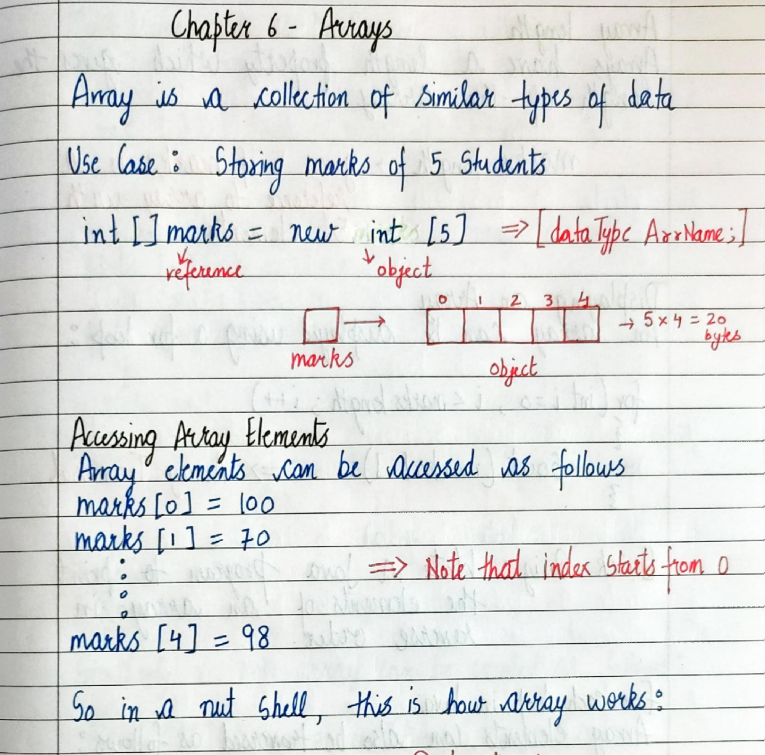 Chapter 6 - Arrays
Array is a collection of similar types of data
Use Case : Storing marks of 5 Students
int [ ] marks = new int [5] ⇒ [dataType ArrName;]
reference object
0 1 2 3 4
→ 5 x 4 = 20
bytes
marks
object
Accessing Array Elements
Array elements can be accessed as follows
marks [0] = 100
marks [1] = 70
⇒ Note that index starts from 0
marks [4] = 98
So in a nut shell, this is how array works :